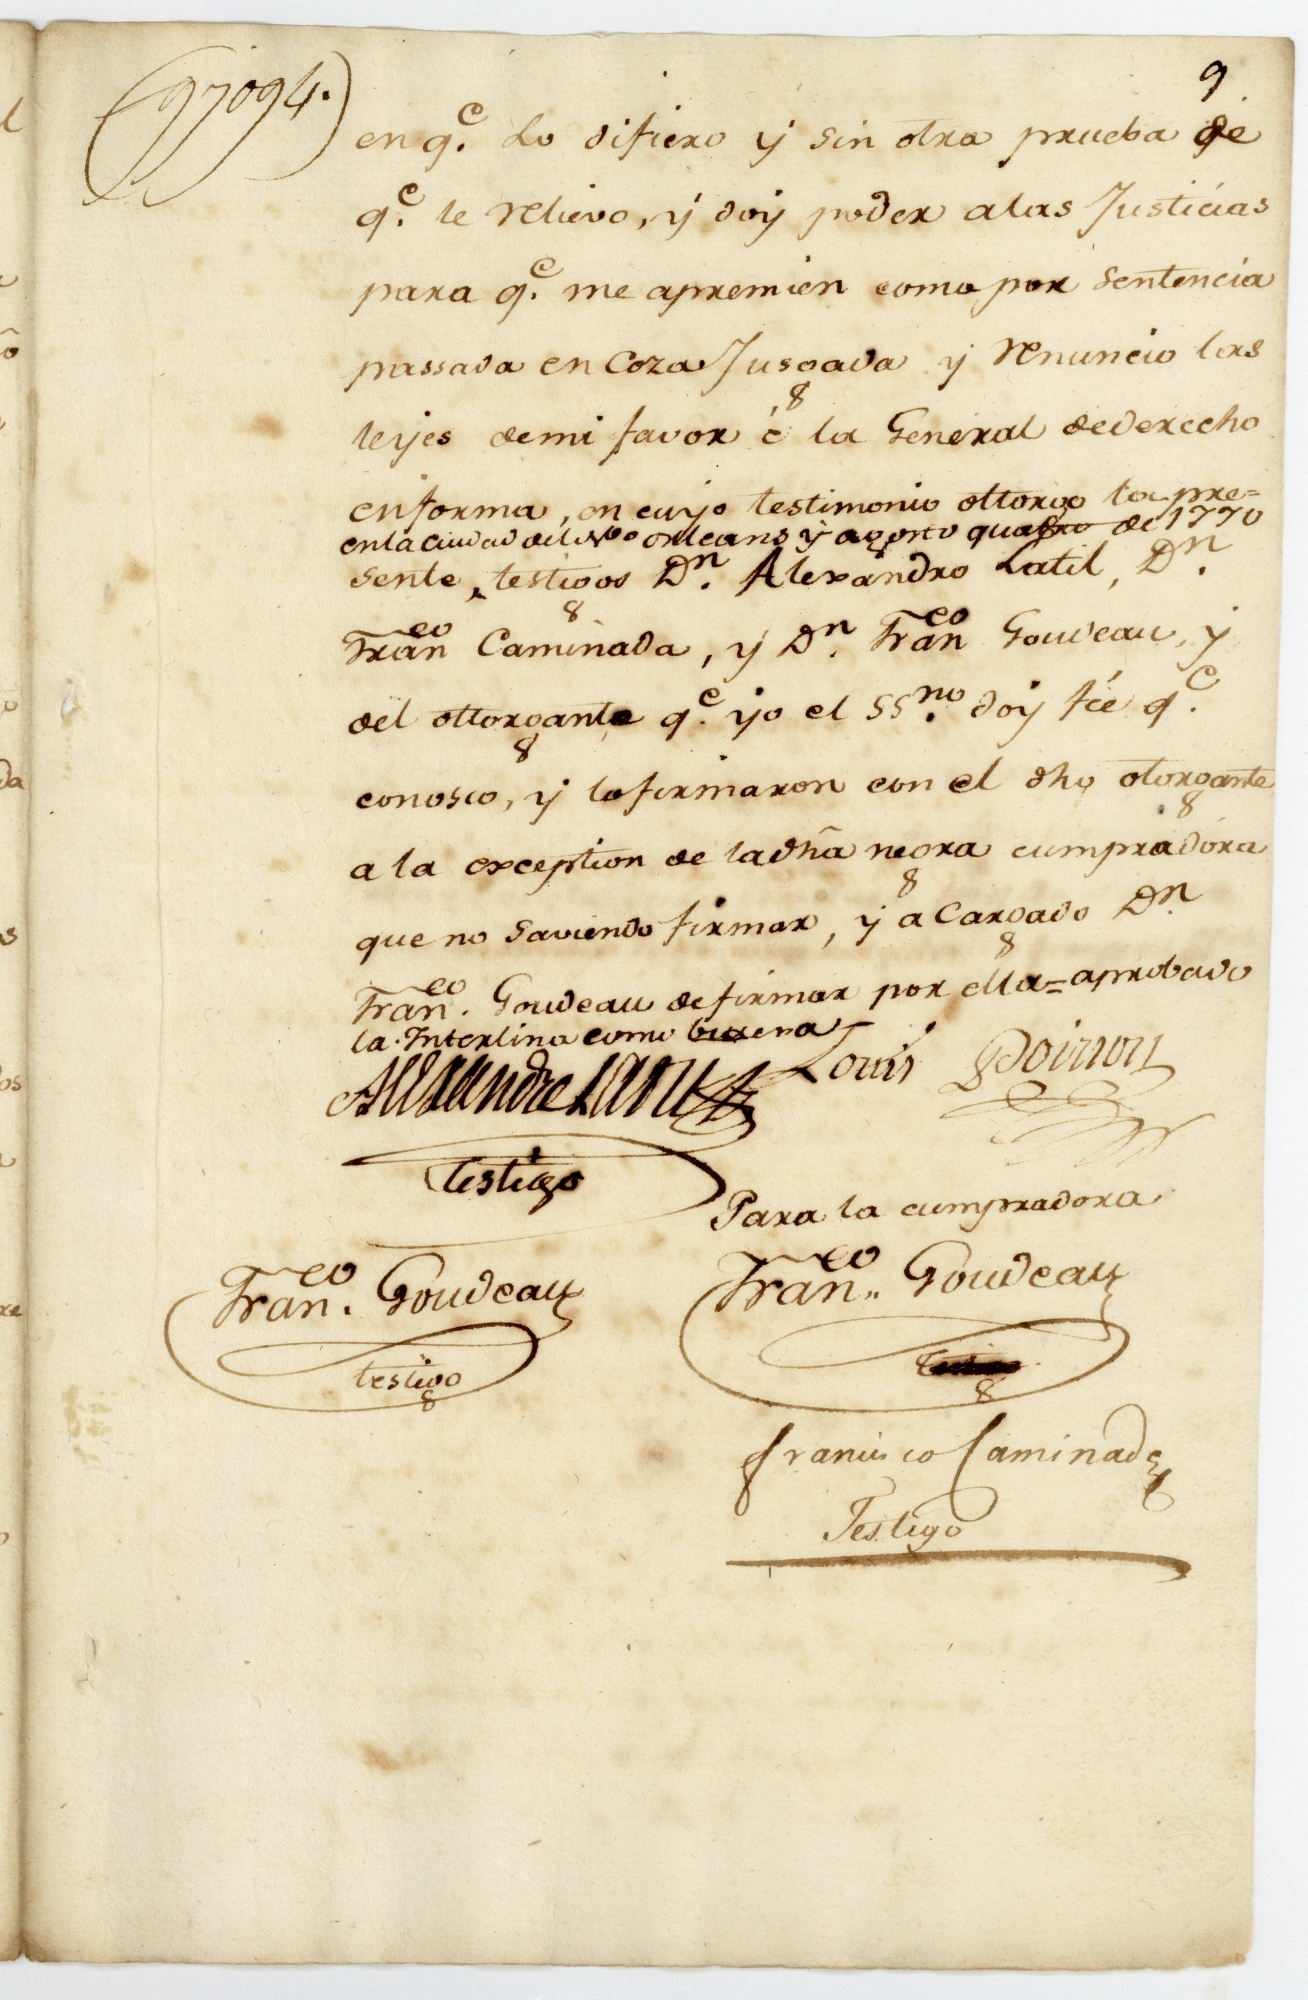 (97094.)
9
en q.e Lo difiero y sin otra prueba de
q.e le relievo, y doy poder a las Justicias
para q.e me apremien como por sentencia
passada en Coza Jusgada y renuncio las
leyes demi favor é la General dederecho
enforma, en cuyo testimonio ottorgo la pre=
enla ciudad del No orleans y agosto quatro de 1770
sente, testigos Dn. Alexandro Latil, Dn.
Franco Caminada, y Dn. Franco Goudeau, y
del ottorgante q.e yo el SS.no doy fée q.e
conosco, y lo firmaron con el dho otorgante
a la exception de ladha negra cumpradora
que no saviendo firmar, y a Cargado Dn.
Franco. Goudeau de firmar por ella = aprobado
la Interlina como buena
Alexandre Latil Louis Poirron
testigo
Para la cumpradora
Franco. Goudeau Franco.. Goudeau
testigo
francisco Caminada
Testigo